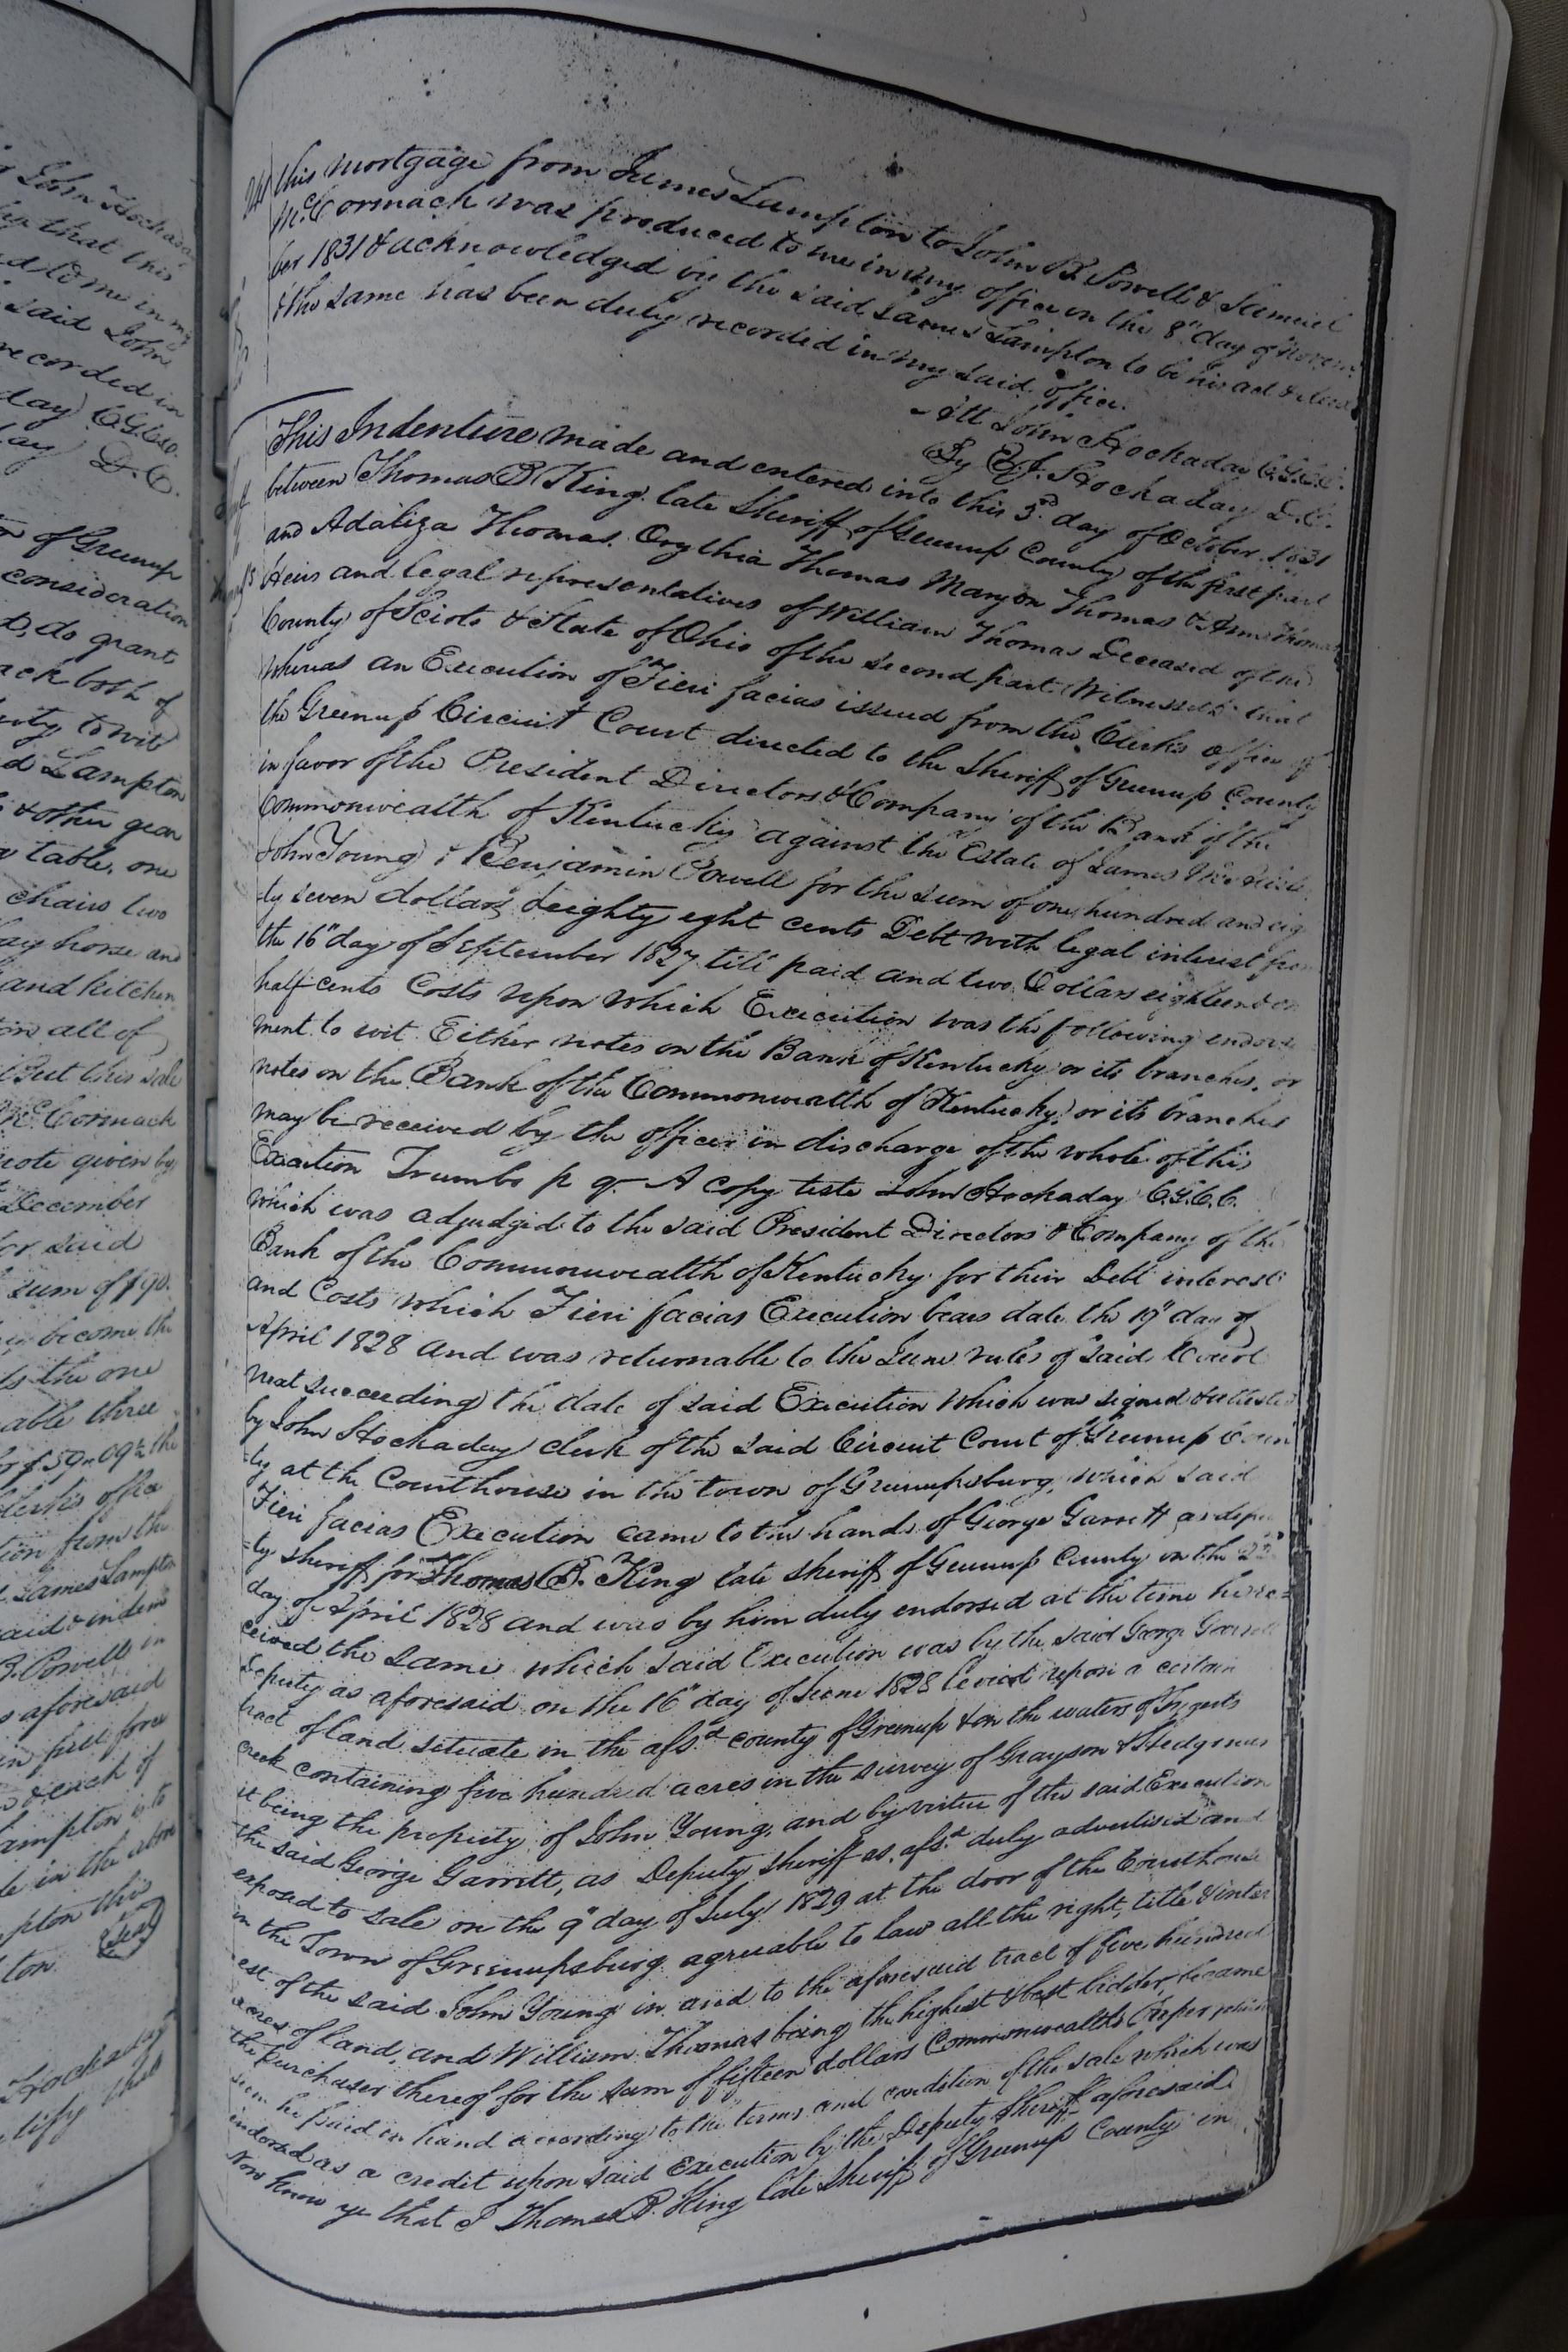 John Hochaday
that this
to me in my
said John
recorded in
day C.G.C.C.
D.C.
of Greenup
consideration
do grant
both of
to wit
Lampton
& other gear
table, one
chairs two
bay horse and
and kitchen
all of
But this sale
McCormack
note given by
December
for said
sum of $90.
become the
the one
able three
$59-09 the
Clerks office
from the
James Lampton
said & indem
B. Powell in
aforesaid
in full force
& each of
Lampton
in the above
this
Seal
Hochaday
this mortgage from James Lampton to John B. Powell & Samuel
McCormack was produced to me in my office on the 8" day of Novem
ber 1831 & acknowledged by the said James Lampton to be his act & deed
& the same has been duly recorded in my said office.
Att John Hochaday C.G.C.C.
By E.J. Hochaday D.C.
This Indenture made and entered into this 3d day of October 1831
between Thomas B King late Sheriff of Greenup County of the first part
and Adaliza Thomas Orythia Thomas Maryon Thomas & Ann Thomas
Heirs and legal representatives of William Thomas Deceased of the
County of Scioto & State of Ohio of the second part Witnesseth that
whereas an Execution of Fieri facias issued from the Clerks office of
the Greenup Circuit Court directed to the Sheriff of Greenup County
in favor of the President Directors & Company of the Bank of the
Commonwealth of Kentucky against the Estate of James
John Young & Benjamin Powell for the sum of one hundred and eig
-ty seven dollars & eighty eight cents Debt with legal interest from
the 16" day of September 1827 till paid and two Dollars eighteen & one
half cents Costs upon which Execution was the following endorse
ment to wit. Either notes on the Bank of Kentucky or its branches, or
notes on the Bank of the Commonwealth of Kentucky or its branches
may be received by the officer in discharge of the whole of this
Execution Trumbo p q- A copy teste John Hochaday C.G.C.C.
which was adjudged to the said President Directors & Company of the
Bank of the Commonwealth of Kentucky for their Debt interest
and Costs which Fieri facias Execution bears date the 19" day of
April 1828 and was returnable to the June rules of said Court
next succeeding the date of said Execution which was signed & attested
by John Hochaday clerk of the said Circuit Court of Greenup Coun
-ty at the Courthouse in the town of Greenupsburg, which said
Fieri facias Execution came to the hands of George Garrett as depu
-ty sheriff for Thomas B. King late sheriff of Greenup County on the 22d
day of April 1828 and was by him duly endorsed at the time he re-
ceived the same which said Execution was by the said George Garrett
Deputy as aforesaid on the 16" day of June 1828 levied upon a certain
tract of land situate in the afsd county of Greenup & on the waters of Tygerts
creek containing five hundred acres in the survey of Grayson & Stedgman
it being the property of John Young, and by virtue of the said Execution
the said George Garrett, as Deputy sheriff as afsd duly advertised and
exposed to sale on the 9" day of July 1829 at the door of the Courthouse
in the Town of Greenupsburg agreeable to law all the right, title & inter
est of the said John Young in and to the aforesaid tract of five hundred
acres of land, and William Thomas being the highest & best bidder, became
the Purchaser thereof for the sum of fifteen dollars Commonwealths Paper which
sum he paid in hand according to the terms and condition of the sale which was
indorsed as a credit upon said Execution by the Deputy Sheriff aforesaid
Now know ye that I Thomas B. King late sheriff of Greenup County in